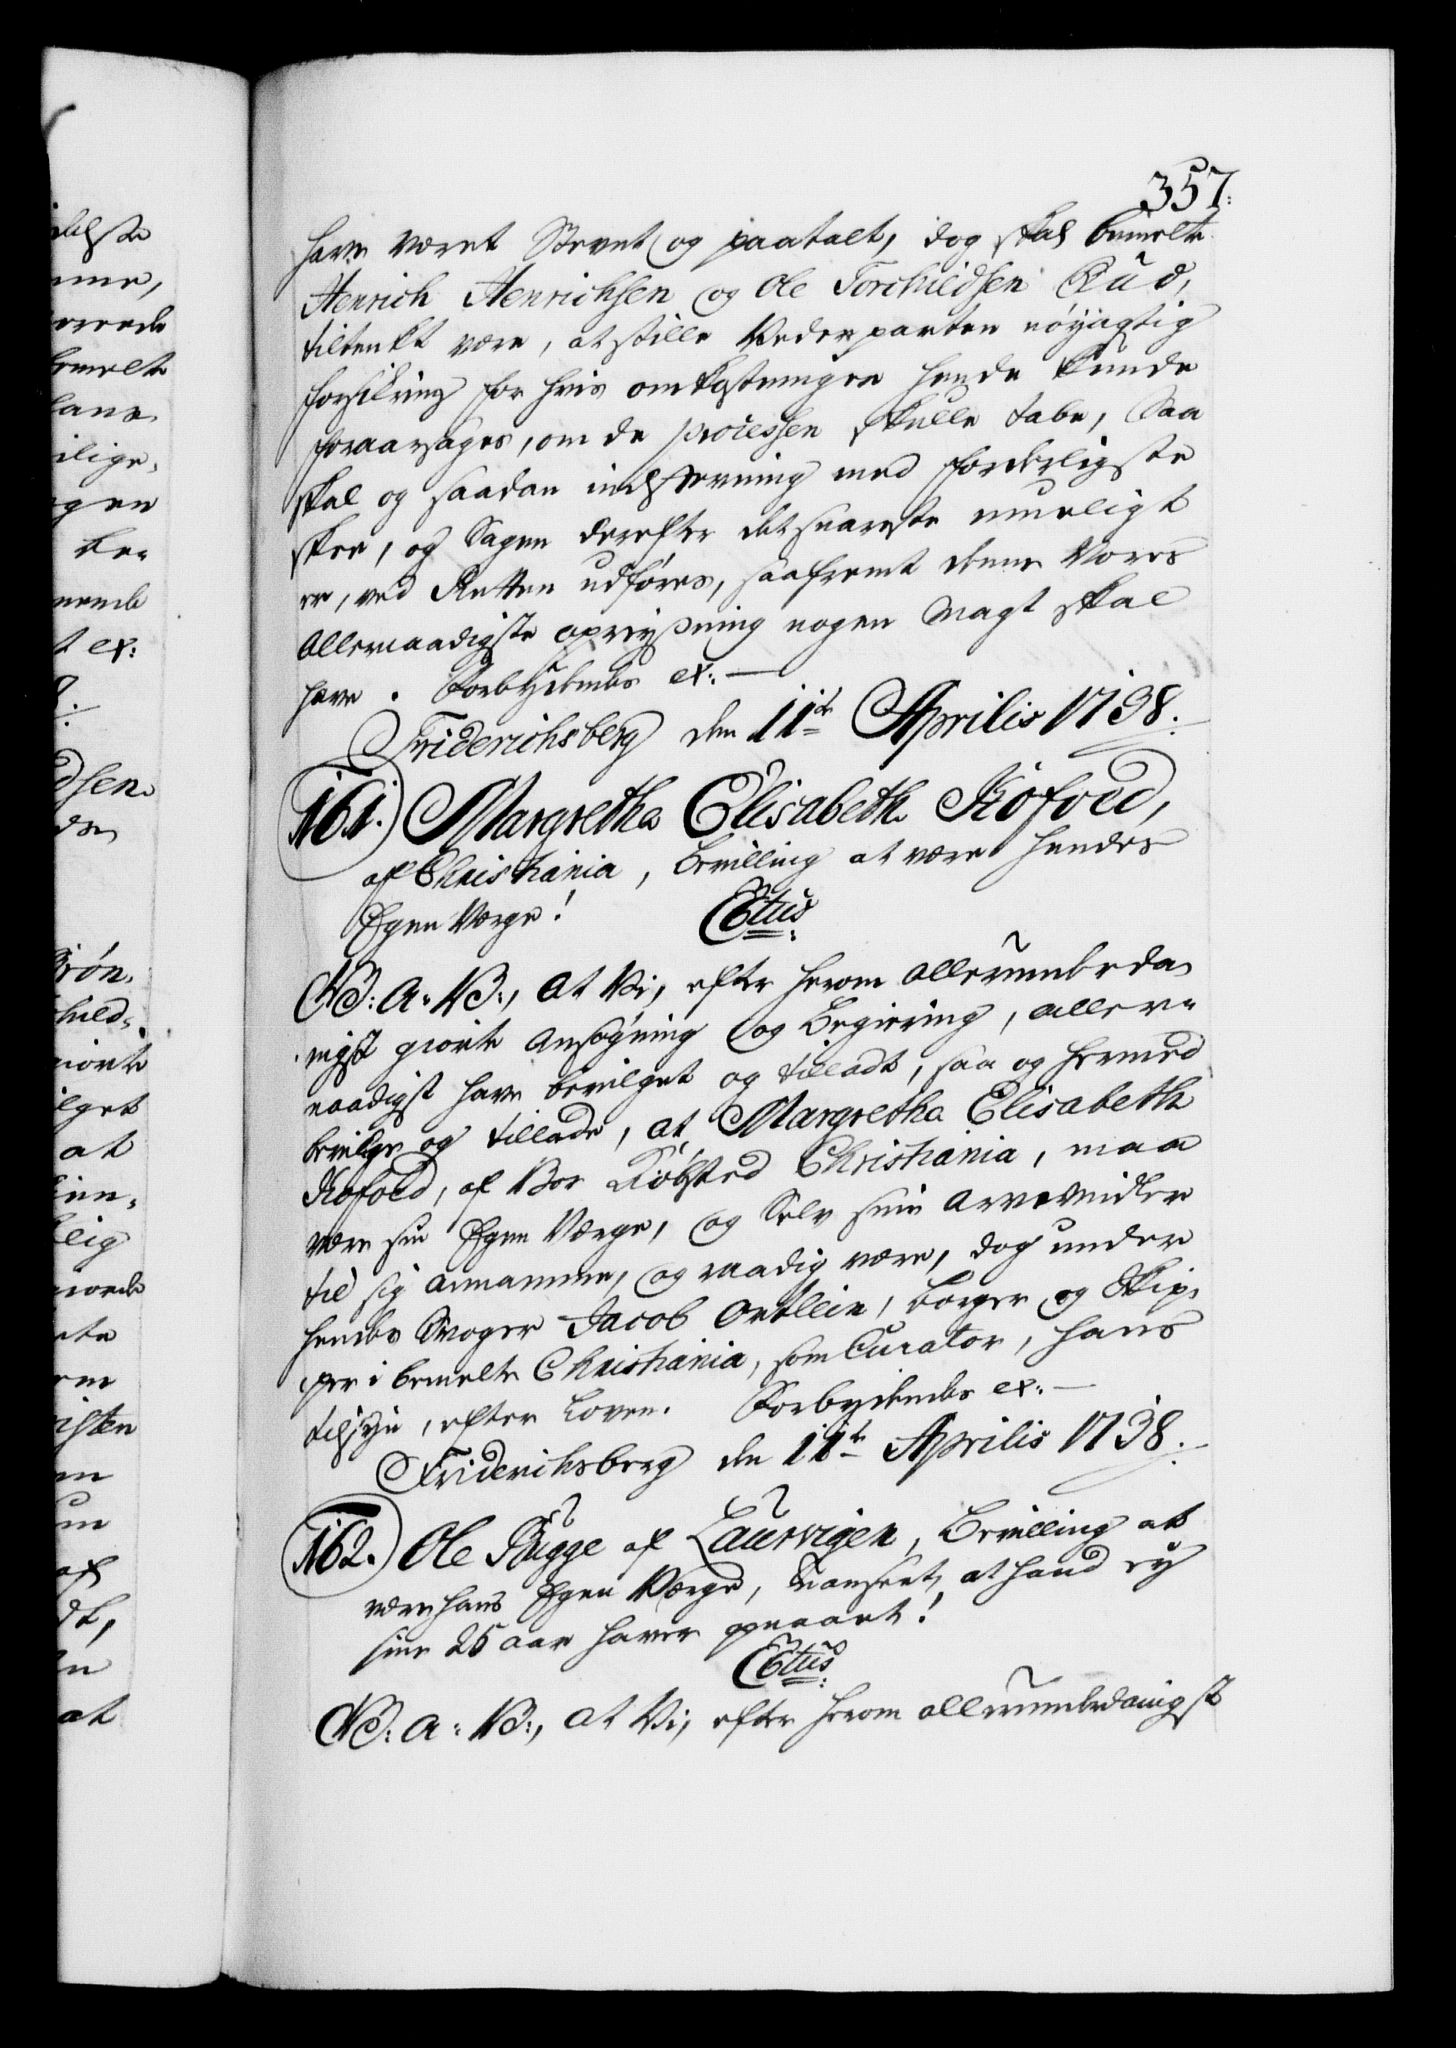 357.
have været Stevnt og paatalt, dog skal bemelte
Henrich Henrichsen og Ole Torchildsen Rud,
tiltenkt være, at stille Vederparten nøyagtig
forsikring for hvis omkostninger hende kunde
foraarsages, om de processen skulle tabe, Saa
skal og saadan indstevning med forderligste
skee, og Sagen derefter det snareste mueligt
er, ved Retten udføres, saafremt denne Vores
allernaadigste opreysning nogen Magt skal
have. Forbydendes etc:
Friderichsberg den 11te Aprilis 1738.
161. Margretha Elisabeth Kofoed,
af Christiania, Bevilling at være hendes
Egen Værge!
C6tus
V B: a: V B:, at Vi, efter herom allerunderda-
nigst giorte Ansøgning og Begiering, aller-
naadigst have bevilget og tilladt, saa og hermed
bevilge og tillade, at Margretha Elisabeth
Kofoed, af Vor Kiøbsted Christiania, maa
være sin Egen Værge, og Selv sine Arvemidler
til sig annamme, og raadig være, dog under
hendes Svoger Jacob Ortlein, borger og Skip-
per i bemelte Christiania, som Curator, hans
tilsyn, efter Loven. Forbydendes etc:
Friderichsberg den 11te Aprilis 1738.
162. Ole Bugge af Laurvigen, Bevilling at
være hans Egen Værge, uanseet at hand ey
sine 25 aar haver opnaaet!
C6tus
V B: a: V B:, at Vi, efter herom allerunderdanigst